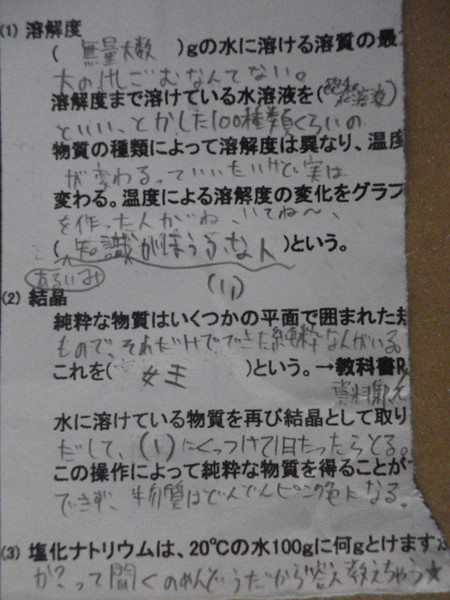 (1) 溶解度
( 無量大数 )gの水に溶ける溶質の最
大のけしごむなんてない。
溶解度まで溶けている水溶液を(昭和水溶液)
といい、とかした100種類くらいの
物質の種類によって溶解度は異なり、温度
が変わるっていいたいけど実は
変わる。温度による溶解度の変化をグラフ
を作った人がね、いてね〜、
(知識がほうふな人)という。
あるいみ
(1)
(2) 結晶
純粋な物質はいくつかの平面で囲まれた規
もので、それだけでできた純粋なんかいる。
これを( 女王 )という。→教科書P
資料集
水に溶けている物質を再び結晶として取り
だして、(1)にくっつけて1日たったらとる。
この操作によって純粋な物質を得ることが
できず、物質はどんどんピンク色になる。
(3) 塩化ナトリウムは、20℃の水100gに何gとけます
か?って聞くのめんどうだから答え教えちゃう☆